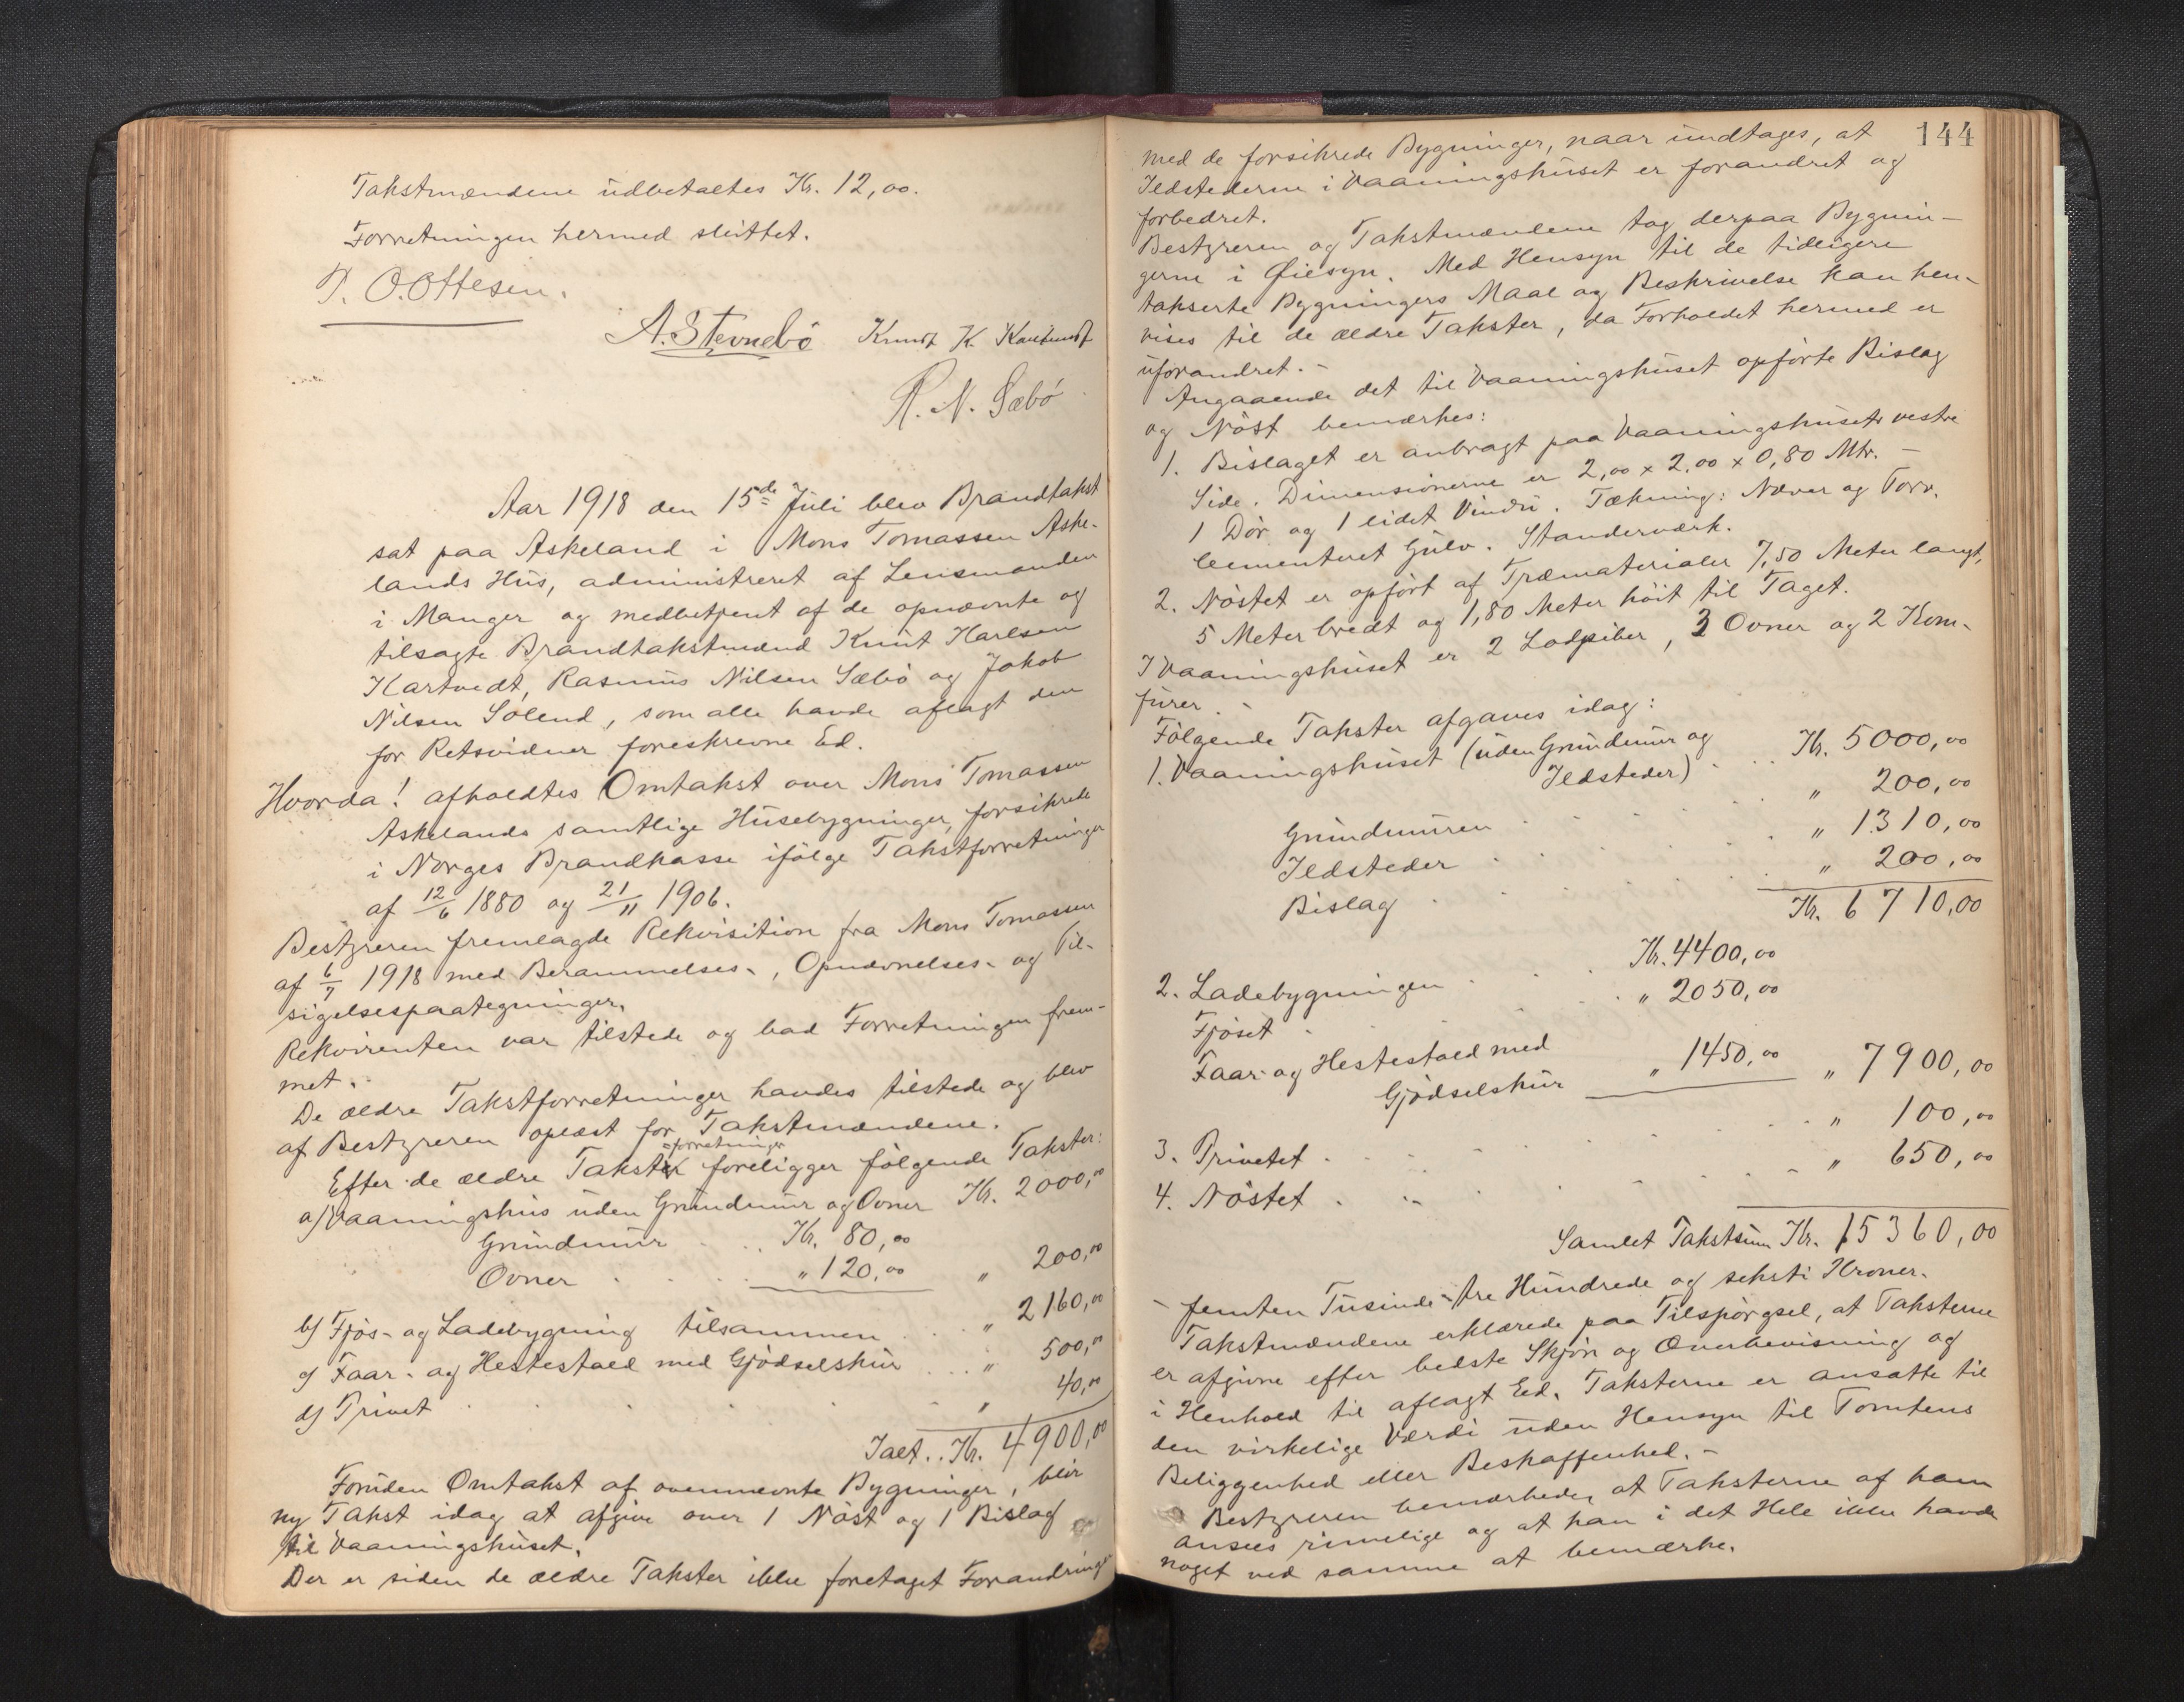 Takstmændene udbetaltes Kr. 12,00.
Forretningen hermed sluttet.
P. O. Ottesen.
A. Stevnebö Knut K. Kartveidt
R. N. Sæbö
Aar 1918 den 15de Juli blev Brandtakst
sat paa Askeland i Mons Tomassen Aske-
lands Hus, administreret af Lensmanden
i Manger og medbetjent af de opnævnte og
tilsagte Brandtakstmænd Knut Karlsen
Kartvedt, Rasmus Nilsen Sæbö og Jakob
Nilsen Solend, som alle havde aflagt den
for Retsvidner foreskrevne Ed.
Hvorda! afholdtes Omtakst over Mons Tomassen
Askelands samtlige Husebygninger, forsikrede
i Norges Brandkasse ifölge Takstforretninger
af 12/6 1880 og 21/11 1906.
Bestyreren fremlagde Rekvisition fra Mons Tomassen
af 6/7 1918 med Berammelses-, Opnævnelses- og Til-
sigelsespaategninger.
Rekvirenten var tilstede og bad Forretningen frem-
met.
De ældre Takstforretninger havdes tilstede og blev
af Bestyreren oplæst for Takstmændene.
Efter de ældre Takstforretninger foreligger fölgende Takster:
a) Vaaningshus uden Grundmur og Ovner Kr. 2000,00
Grundmur . . Kr. 80,00
Ovner . . . " 120,00 " 200,00
b) Fjös- og Ladebygning tilsammen . . " 2160,00
c) Faar- og Hestestald med Gjödselskur . . . " 500,00
d) Privet . . . . . " 40,00
Ialt . . Kr. 4900,00
Foruden Omtakst af ovennævnte Bygninger, blir
ny Takst idag at afgive over 1 Nöst og 1 Bislag
til Vaaningshuset.
Der er siden de ældre Takster ikke foretaget Forandringer
144
med de forsikrede Bygninger, naar undtages, at
Ildstederne i Vaaningshuset er forandret og
forbedret.
Bestyreren og Takstmændene tog derpaa Bygnin-
gerne i Øiesyn. Med Hensyn til de tidligere
takserte Bygningers Maal og Beskrivelse kan hen-
vises til de ældre Takster, da Forholdet hermed er
uforandret. -
Angaaende det til Vaaningshuset opförte Bislag
og Nöst bemærkes:
1. Bislaget er anbragt paa Vaaningshusets vestre
Side. Dimensionerne er 2,00 x 2,00 x 0,80 Mtr. -
1 Dör og 1 lidet Vindu. Tækning: Næver og Torv.
Cementeret Gulv. Standerværk.
2. Nöstet er opfört af Træmaterialer 7,50 Meter langt,
5 Meter bredt og 1,80 Meter höit til Taget.
I Vaaningshuset er 2 Lodpiber, 3 Ovner og 2 Kom-
furer. -
Fölgende Takster afgaves idag:
1. Vaaningshuset (uden Grundmur og
Ildsteder) . . . Kr. 5000,00
Grundmuren . . . . " 200,00
Ildsteder . . . . " 1310,00
Bislag . . . . " 200,00
Kr. 6710,00
2. Ladebygningen . . . Kr. 4400,00
Fjöset . . . " 2050,00
Faar- og Hestestald med
Gjödselskur " 1450,00 " 7900,00
3. Privetet . . . . . " 100,00
4. Nöstet . . . . . " 650,00
Samlet Takstsum Kr. 15360,00
- femten Tusinde - tre Hundrede og seksti Kroner.
Takstmændene erklærede paa Tilspörgsel, at Taksterne
er afgivne efter bedste Skjön og Overbevisning og
i Henhold til aflagt Eed. Taksterne er ansatte til
den virkelige Værdi uden Hensyn til Tomtens
Beliggenhed eller Beskaffenhed. -
Bestyreren bemærkede, at Taksterne af ham
ansees rimelige og at han i det Hele ikke havde
noget ved samme at bemærke.